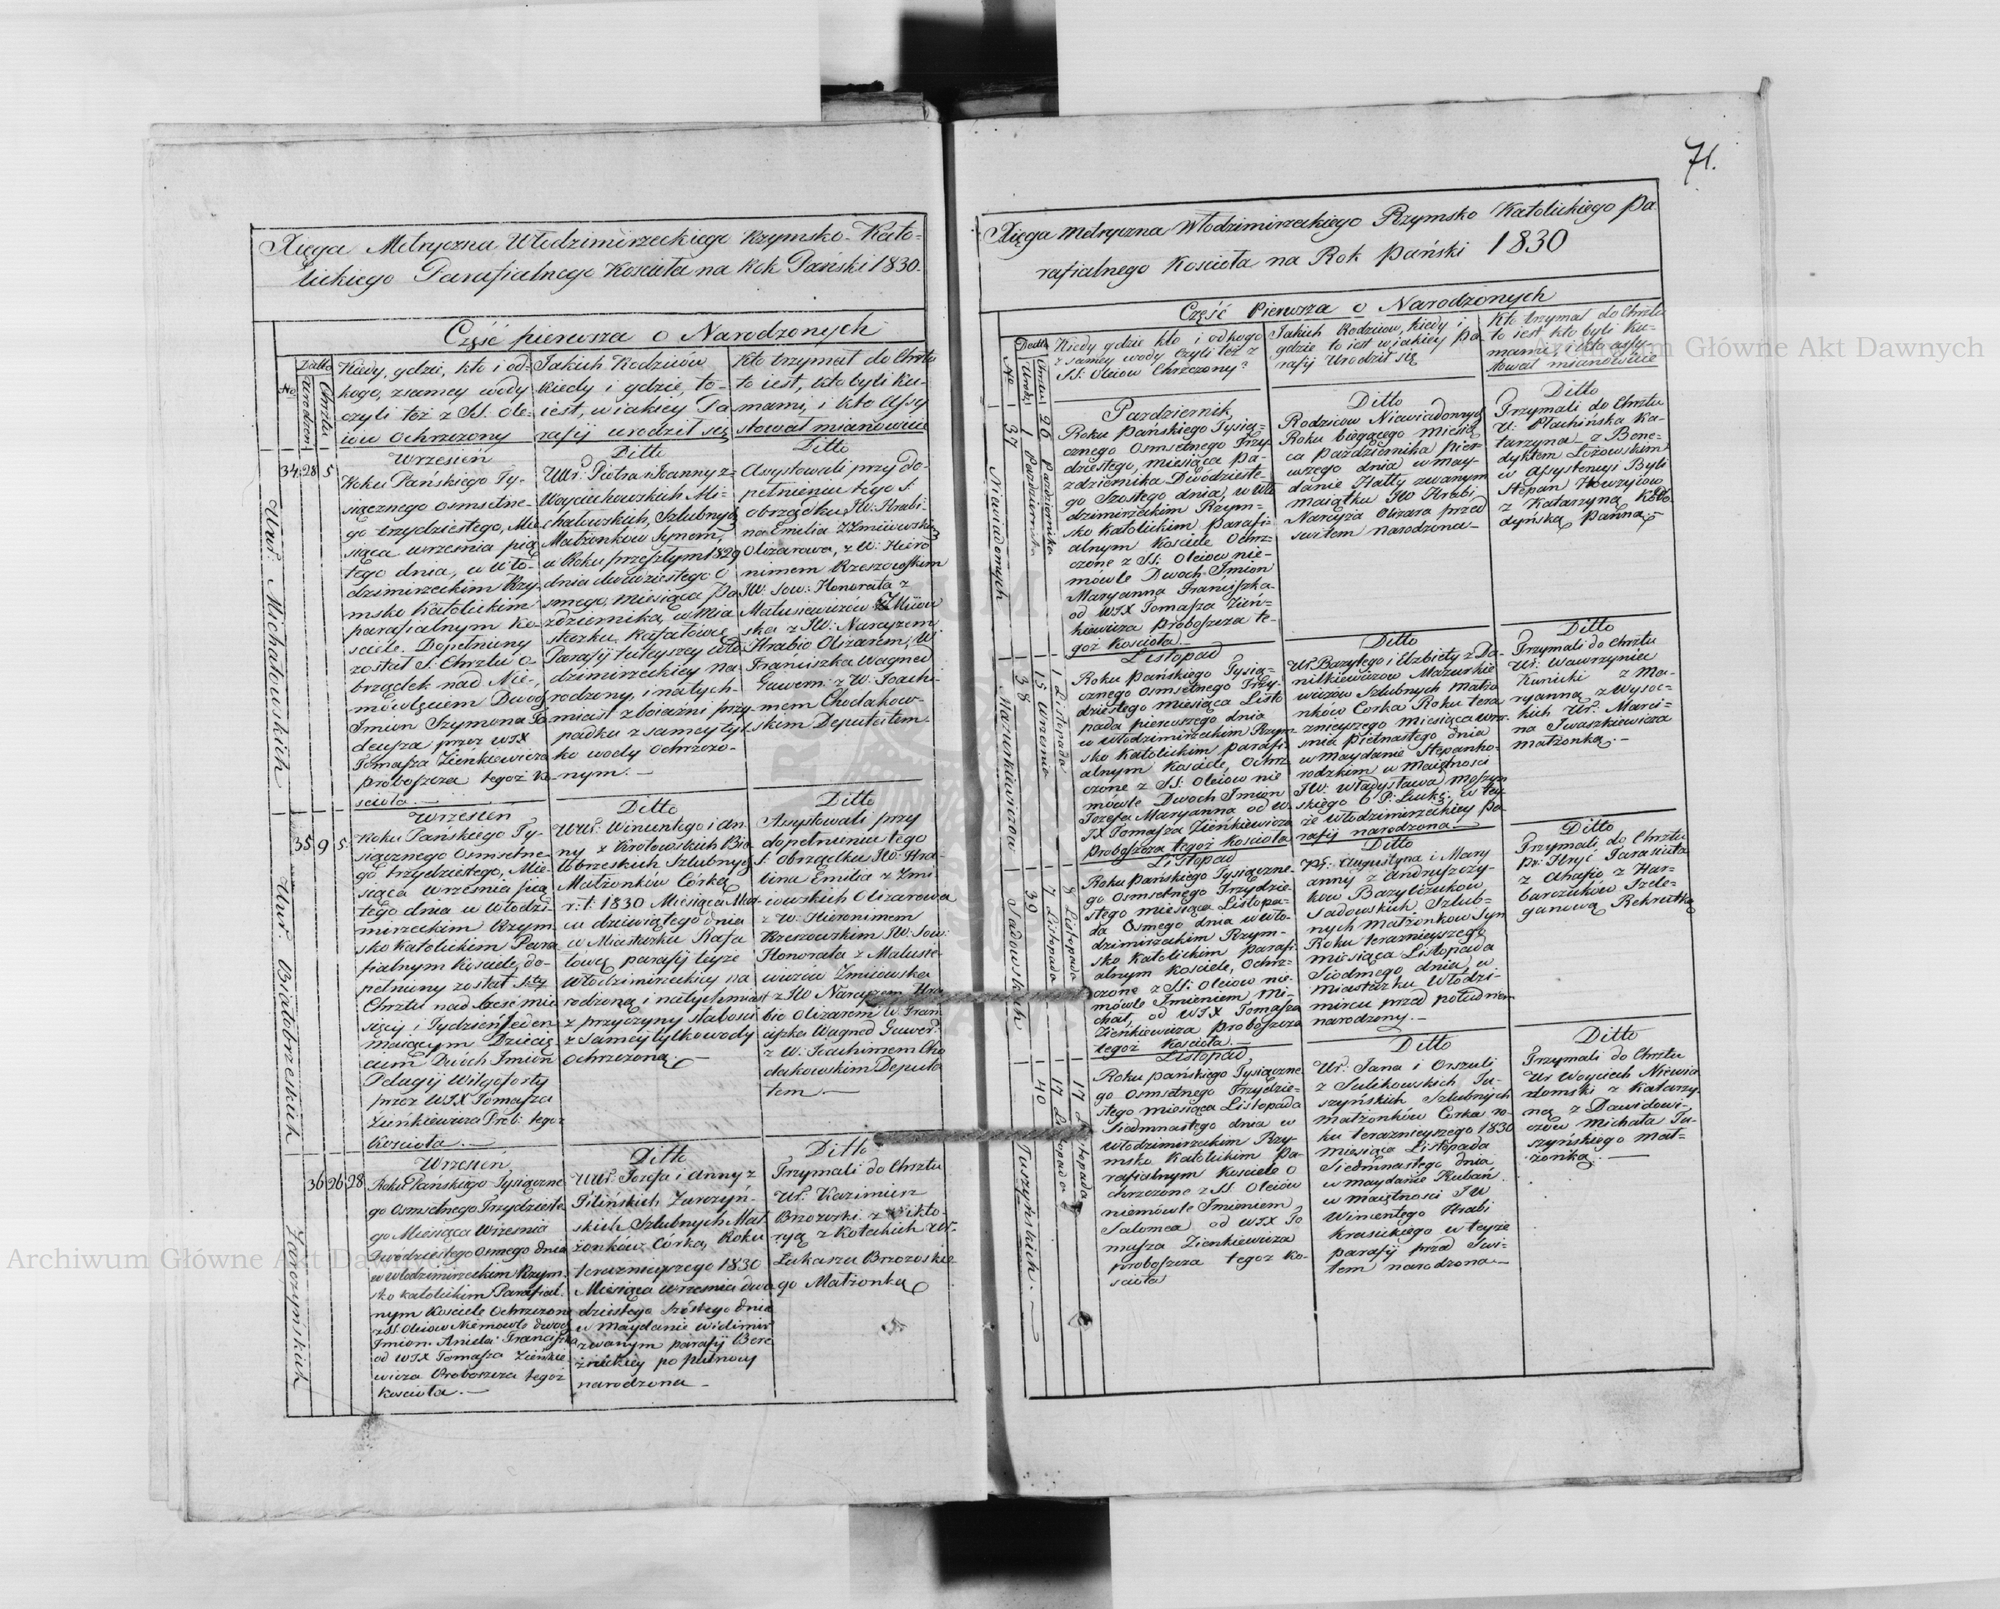 71.
Xięga Metryczna Włodzimirzeckiego Rzymsko-Kato-
lickiego Parafialnego Kościoła na Rok Pański 1830.
Część pierwsza o Narodzonych
No
Datto
Urodzen
Chrztu
Kiedy, gdzie, kto i od
kogo, z samey wody
czyli też z SS. Ole-
iow ochrzczony
Jakich Rodziców
kiedy i gdzie, to-
iest, w iakiey Pa-
rafij urodził się
Kto trzymał do Chrztu
to iest, kto byli ku-
mami, i kto Assy
stował mianowicie
34
28
5
Urur: Michałowskich
Wrzesień
Roku Pańskiego Ty-
siącznego osmsetne-
go trzydziestego, Mie-
siąca września pią
tego dnia, w Wło-
dzimirzeckim Rzy-
msko Katolickim
parafialnym Ko-
ściele, Dopełniony
został S. Chrztu o
brządek nad Nie-
mówlęciem Dwoyg
Imion Szymona Ta
deusza przez WJX
Tomasza Zienkiewicza
Proboszcza tegoż Ko-
ścioła.—
Ditto
Urur: Piotra i Joanny z
Woyciechowskich Mi-
chałowskich, Szlubnych
Małżonkow Synem,
w Roku przeszłym 1829
dnia dwudziestego o
smego, miesiąca Pa
zdziernika, w Mia
steczku Rafałowce
Parafij tuteyszey Wło
dzimirzeckiey na
rodzony, i natych-
miast z boiaźni przy
padku z samey tyl
ko wody ochrzczo-
nym.—
Ditto
Asystowali przy do-
pełnieniu tego S.
obrządku JW: Hrabi-
na Emilia z Zmiiewskich
Olizarowa, z W: Hiero
nimem Rzeszowskim
JW: Sow: Honorata z
Matusiewiczow Zmiiow
ska z JW: Narcyzem
Hrabio Olizarem, W:
Franciszka Wagned
Guwern: z W: Joachi-
mem Chodakow-
skim Deputatem.
35
9
5
Urur: Białobrzeskich
Wrzesień
Roku Pańskiego Ty-
siącznego Osmsetne-
go trzydziestego, Mie-
siąca września pią
tego dnia w Włodzi-
mirzeckim Rzym-
sko Katolickim Para
fialnym Kościele, do-
pełniony został Stey
Chrztu nad sześć mie
sięcy i Tydzień jeden
maiącym Dziecię-
ciem Dwóch Imion
Pelagij Wilgeforty
przez WJX Tomasza
Zieńkiewicza Prob: tegoż
Kościoła.—
Ditto
Urur: Wincentego i An-
ny z Krolowskich Bia
łobrzeskich Szlubnych
Małżonków Córką
r: t: 1830 Miesiąca Mar
ca dziewiątego dnia
w Miasteczku Rafa
łowce parafij teyże
Włodzimirzeckiey na
rodzoną i natychmiast
z przyczyny słabości
z samey tylko wody
ochrzczoną.—
Ditto
Assystowali przy
dopełnieniu tego
S. obrządku JW: Hra-
bina Emilia z Zmi
iowskich Olizarowa
z W: Hieronimem
Rzeszowskim JW: Sow:
Honorata z Matusie
wiczow Zmiiowska
z JW Narcyzem Hra
bio Olizarem W: Fran
ciszka Wagned Guwer:
z W: Joachimem Cho
dakowskim Deputa
tem—
36
26
28
Zarczynskich
Wrzesień
Roku Pańskiego Tysiączne
go Osmsetnego Trzydzieste
go Miesiąca Września
Dwódziestego Osmego dnia
w Włodzimirzeckim Rzym
sko Katolickim Parafial
nym Kościele Ochrzczone
z SS. Oleiow Niemowle dwoch
Imion Aniela Franciszka
od WJX Tomasza Zieńkie
wicza Proboszcza tegoż
Kościoła.—
Ditto
Urur: Jozefa i Anny z
Pilińskich Zarczyń-
skich Szlubnych Mał
żonków Córka, Roku
terazniejszego 1830
Miesiąca Września dwu
dziestego szóstego dnia
w Maydanie Widimir
zwanym parafij Bere
źnickiey po północy
narodzona—
Ditto
Trzymali do Chrztu
Ur: Kazimierz
Brzozowski z Wikto-
ryą z Koteckich Ur:
Łukasza Brzozoskie
go Małżonką
Xięga Metryczna Włodzimirzeckiego Rzymsko Katolickiego Pa-
rafialnego Kościoła na Rok Pański 1830
Część Pierwsza o Narodzonych
No
Datto
Urodz
Chrztu
Kiedy gdzie kto i od kogo
z samey wody czyli też z
SS. Oleiow Chrzczony?
Jakich Rodzicow, kiedy i
gdzie to iest w iakiey Pa
rafij Urodził się
Kto trzymał do Chrztu
to iest kto byli ku-
mami, i kto assy-
stował mianowicie
37
1 Pazdziernika
26 Pazdziernika
Niewiadomych
Pazdziernik
Roku Pańskiego Tysią-
cznego Osmsetnego Trzy
dziestego, miesiąca Pa-
zdziernika Dwodzieste-
go Szostego dnia, w Wło
dzimirzeckim Rzym-
sko Katolickim Parafi-
alnym Kościele Ochrz-
czone z SS. Oleiow nie-
mowle Dwoch Imion
Maryanna Franciszka
od WJX Tomasza Zień-
kiewicza Proboszcza te-
goż Kościoła.—
Ditto
Rodzicow Niewiadomych
Roku biegącego miesią
ca Pazdziernika pier-
wszego dnia w May-
danie Hatty zwanym
maiątku JW Hrabi
Narcyza Olizara przed
switem narodzona—
Ditto
Trzymali do Chrztu
U: Płachińska Ka-
tarzyna z Bene-
dyktem Lożowskim
w Assystencyi Byli
Stepan Howryiow
z Katarzyną
Panną—
38
15 Wrzesnia
1 Listopada
Mazurkiewiczow
Listopad
Roku Pańskiego Tysią-
cznego Osmsetnego Trzy-
dziestego miesiąca Listo
pada pierwszego dnia
w Włodzimirzeckim Rzym
sko Katolickim Parafi
alnym Kościele, Ochrz
czone z SS. Oleiow nie
mowle Dwoch Imion
Jozefa Maryanna od W.
JX Tomasza Zieńkiewicza
Proboszcza tegoż Kościoła
Ditto
Ur: Bazylego i Elzbiety z Da-
nilkiewiczow Mazurkie
wiczow Szlubnych Małżo
nków Corka Roku tera
znieyszego miesiąca wrze
snia pietnastego dnia
w Maydanie Stepanho-
rodzkim w Maiętności
JW: Władysława Moszyn
skiego O P: Łuck: w tey
że Włodzimirzeckiey Pa
rafij narodzona—
Ditto
Trzymali do Chrztu
Ur: Wawrzyniec
Kunicki z Ma-
ryanną z Wysoc-
kich Ur: Marci-
na Iwaszkiewicza
małżonką.—
39
7 Listopada
8 Listopada
Sadowskich
Listopad
Roku Pańskiego Tysiączne-
go Osmsetnego Trzydzie-
stego miesiąca Listopa-
da Osmego dnia w Wło-
dzimirzeckim Rzym-
sko Katolickim Parafi
alnym Kościele, Ochrz-
czone z SS. Oleiow nie-
mówle Imieniem Mi-
chał, od WJX Tomasza
Zieńkiewicza Proboszcza
tegoż Kościoła.—
Ditto
Pr: Augustyna i Mary
anny z Andruszczy-
kow Bazylczukow
Sadowskich Szlub-
nych małżonkow Syn
Roku terazniejszego
miesiąca Listopada
Siodmego dnia, w
miasteczku Włodzi-
mircu przed południem
narodzony.—
Ditto
Trzymali, do Chrztu
Pr: Hryć Tarasiuta
z Ahafią z Har-
barczuków Szele-
ganową Rekrutką
40
17 Listopada
17 Listopada
Tuszyńskich.—
Listopad
Roku Pańskiego Tysiączne
go Osmsetnego Trzydzie-
stego miesiąca Listopada
Siedmnastego dnia w
Włodzimirzeckim Rzy-
msko Katolickim Pa-
rafialnym Kościele o
chrzczone z SS. Oleiów
niemówle Imieniem
Salomea od WJX To
masza Zienkiewicza
Proboszcza tegoż Ko-
ścioła
Ditto
Ur: Jana i Orszuli
z Sulikowskich Tu-
szyńskich Szlubnych
małżonków Corka ro-
ku terazniejszego 1830
miesiąca Listopada
Siedmnastego dnia
w maydanie Rubań
w maiętnosci JW
Wincentego Hrabi
Krasickiego w teyże
parafij przed swi-
tem narodzona—
Ditto
Trzymali do Chrztu
Ur Woyciech Niewia
domski z Katarzy-
ną z Dawidowi-
czow Michała Tu-
szyńskiego mał-
żonką.—
Archiwum Główne Akt Dawnych
Archiwum Główne Akt Dawnych